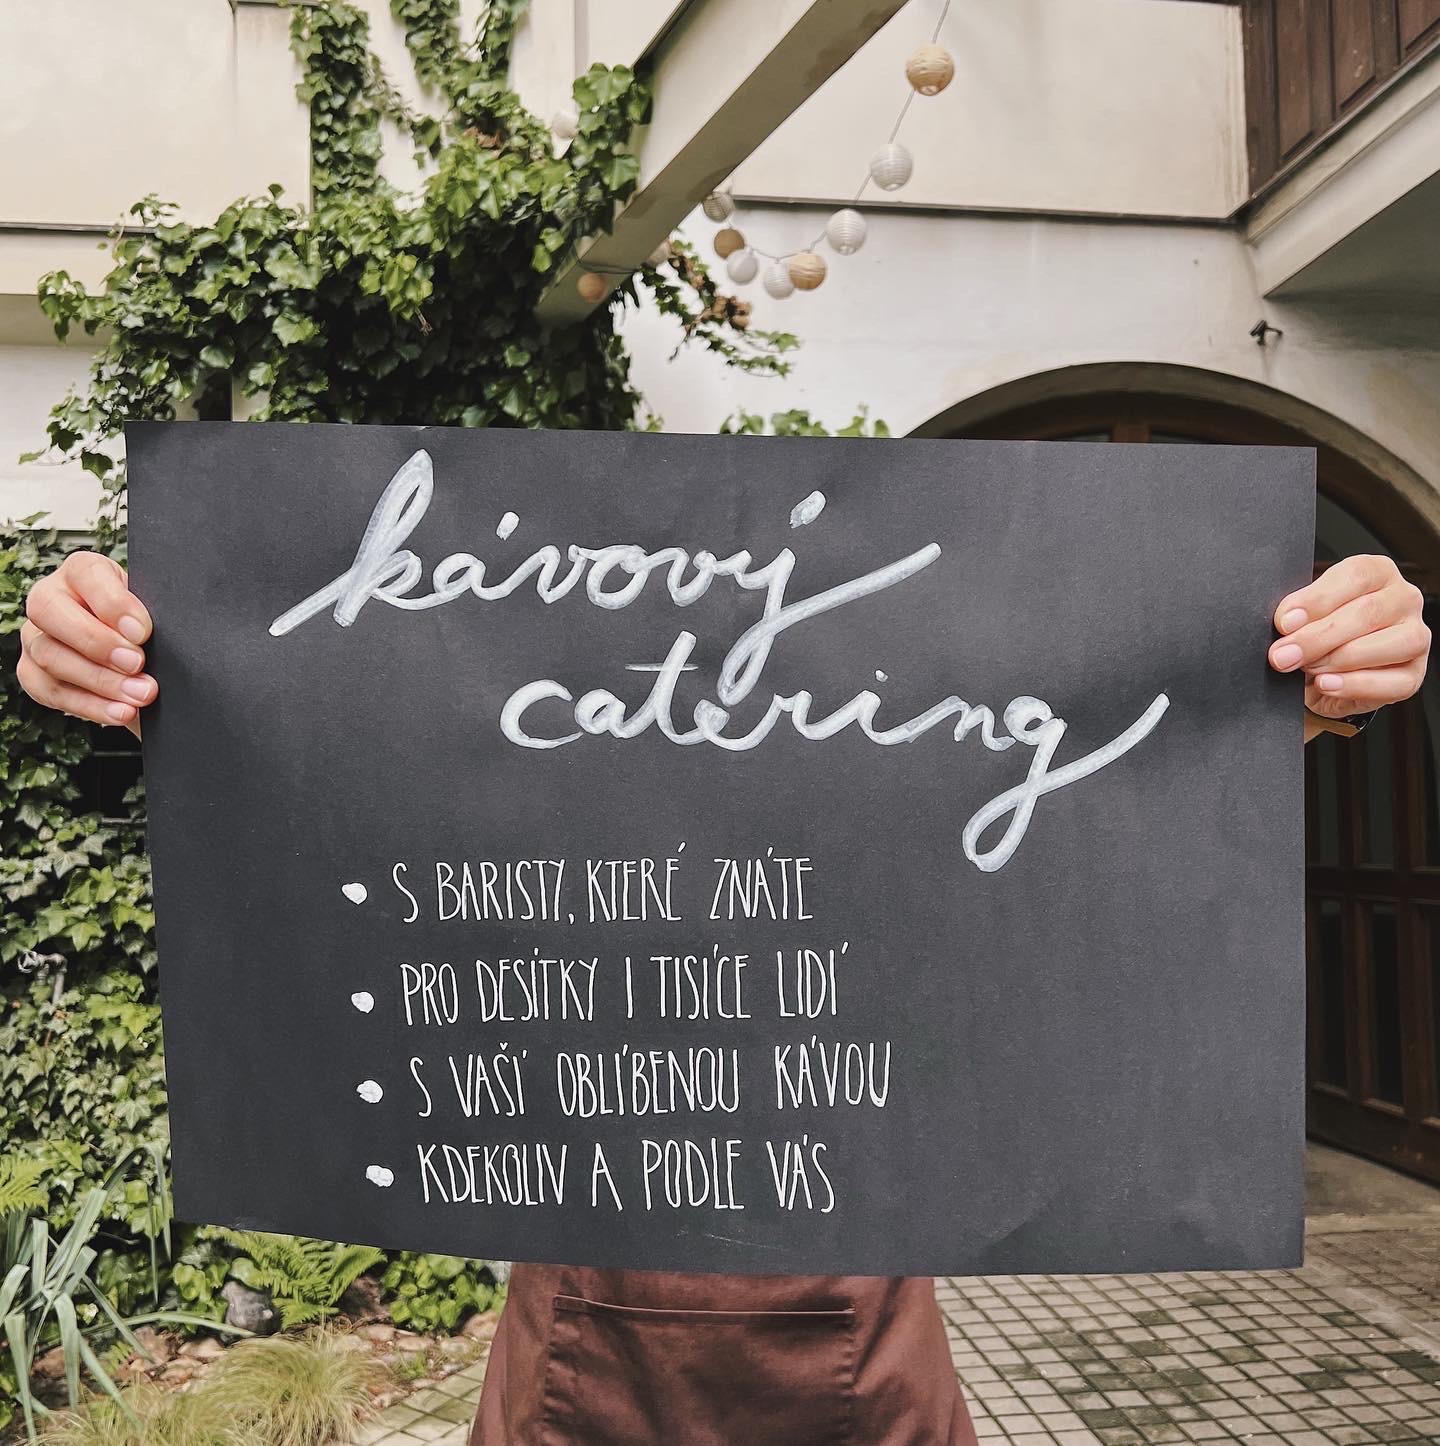 kávový
catering
• S BARISTY, KTERÉ ZNÁTE
• PRO DESÍTKY I TISÍCE LIDÍ
• S VAŠÍ OBLÍBENOU KÁVOU
• KDEKOLIV A PODLE VÁS